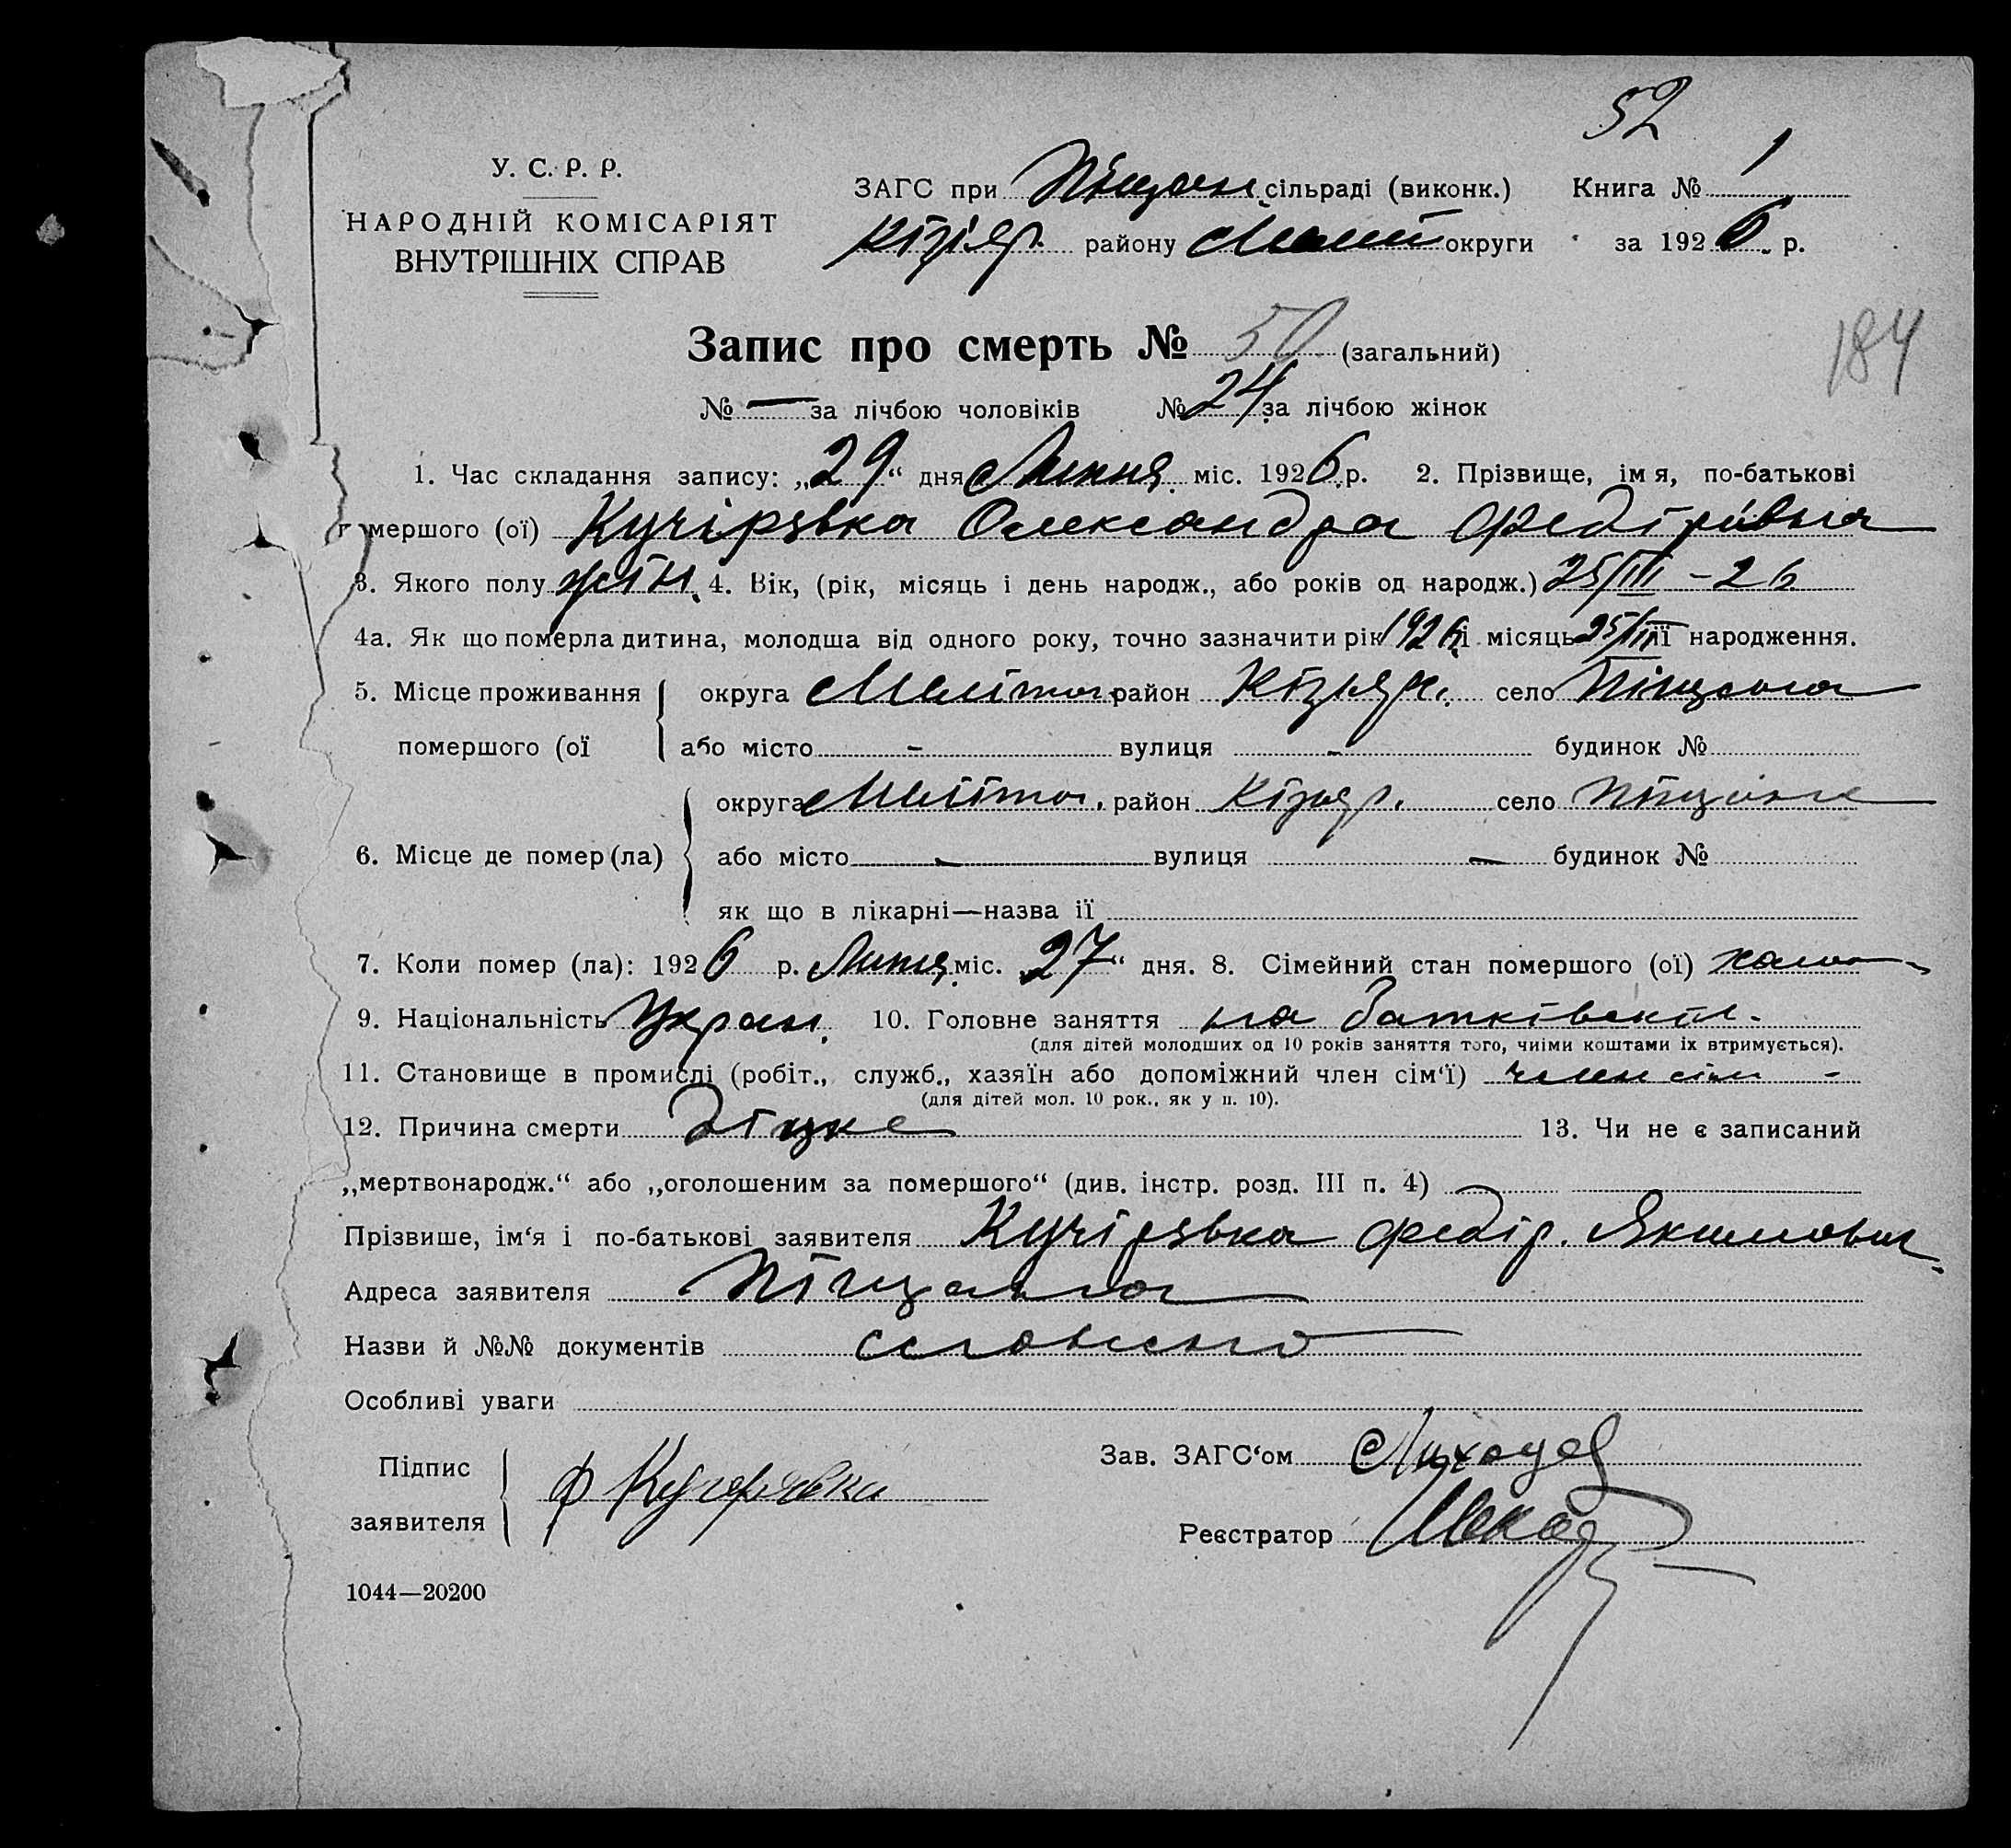 52
У. С. Р. Р.
НАРОДНІЙ КОМІСАРІЯТ
ВНУТРІШНІХ СПРАВ
ЗАГС при Піщан сільраді (виконк.) Книга № 1
Кізіяр. району Меліт округи за 1926 р.
Запис про смерть № 50 (загальний)
184
№ — за лічбою чоловіків № 24 за лічбою жінок
1. Час складання запису: „29“ дня Липня міс. 1926 р. 2. Прізвище, ім я, по-батькові
помершого (ої) Кучірявка Олександра Федірівна
3. Якого полу жін. 4. Вік, (рік, місяць і день народж., або років од народж.) 25/III – 26
4а. Як що померла дитина, молодша від одного року, точно зазначити рік 1926 і місяць 25/III її народження.
5. Місце проживання помершого (ої округа Меліто район Кізіяр. село Піщана
або місто - вулиця - будинок №
6. Місце де помер (ла) округа Меліто. район Кізіяр. село Піщана
або місто - вулиця — будинок №
як що в лікарні—назва ії
7. Коли помер (ла): 1926 р. Липня міс. „27“ дня. 8. Сімейний стан помершого (ої)
9. Національність Украи. 10. Головне заняття на батьківськім.
(для дітей молодших од 10 років заняття того, чиїми коштами їх втримується).
11. Становище в промислі (робіт., служб., хазяїн або допоміжний член сім‘ї) член сім -
(для дітей мол. 10 рок., як у п. 10).
12. Причина смерти 13. Чи не є записаний
„мертвонародж.“ або „оголошеним за помершого“ (див. інстр. розд. III п. 4)
Прізвише, ім‘я і по-батькові заявителя Кучірявка Федір. Якимович
Адреса заявителя Піщана
Назви й №№ документів словесно
Особливі уваги
Підпис заявителя Ф Кучерявка
Зав. ЗАГС‘ом
Реєстратор
1044—20200